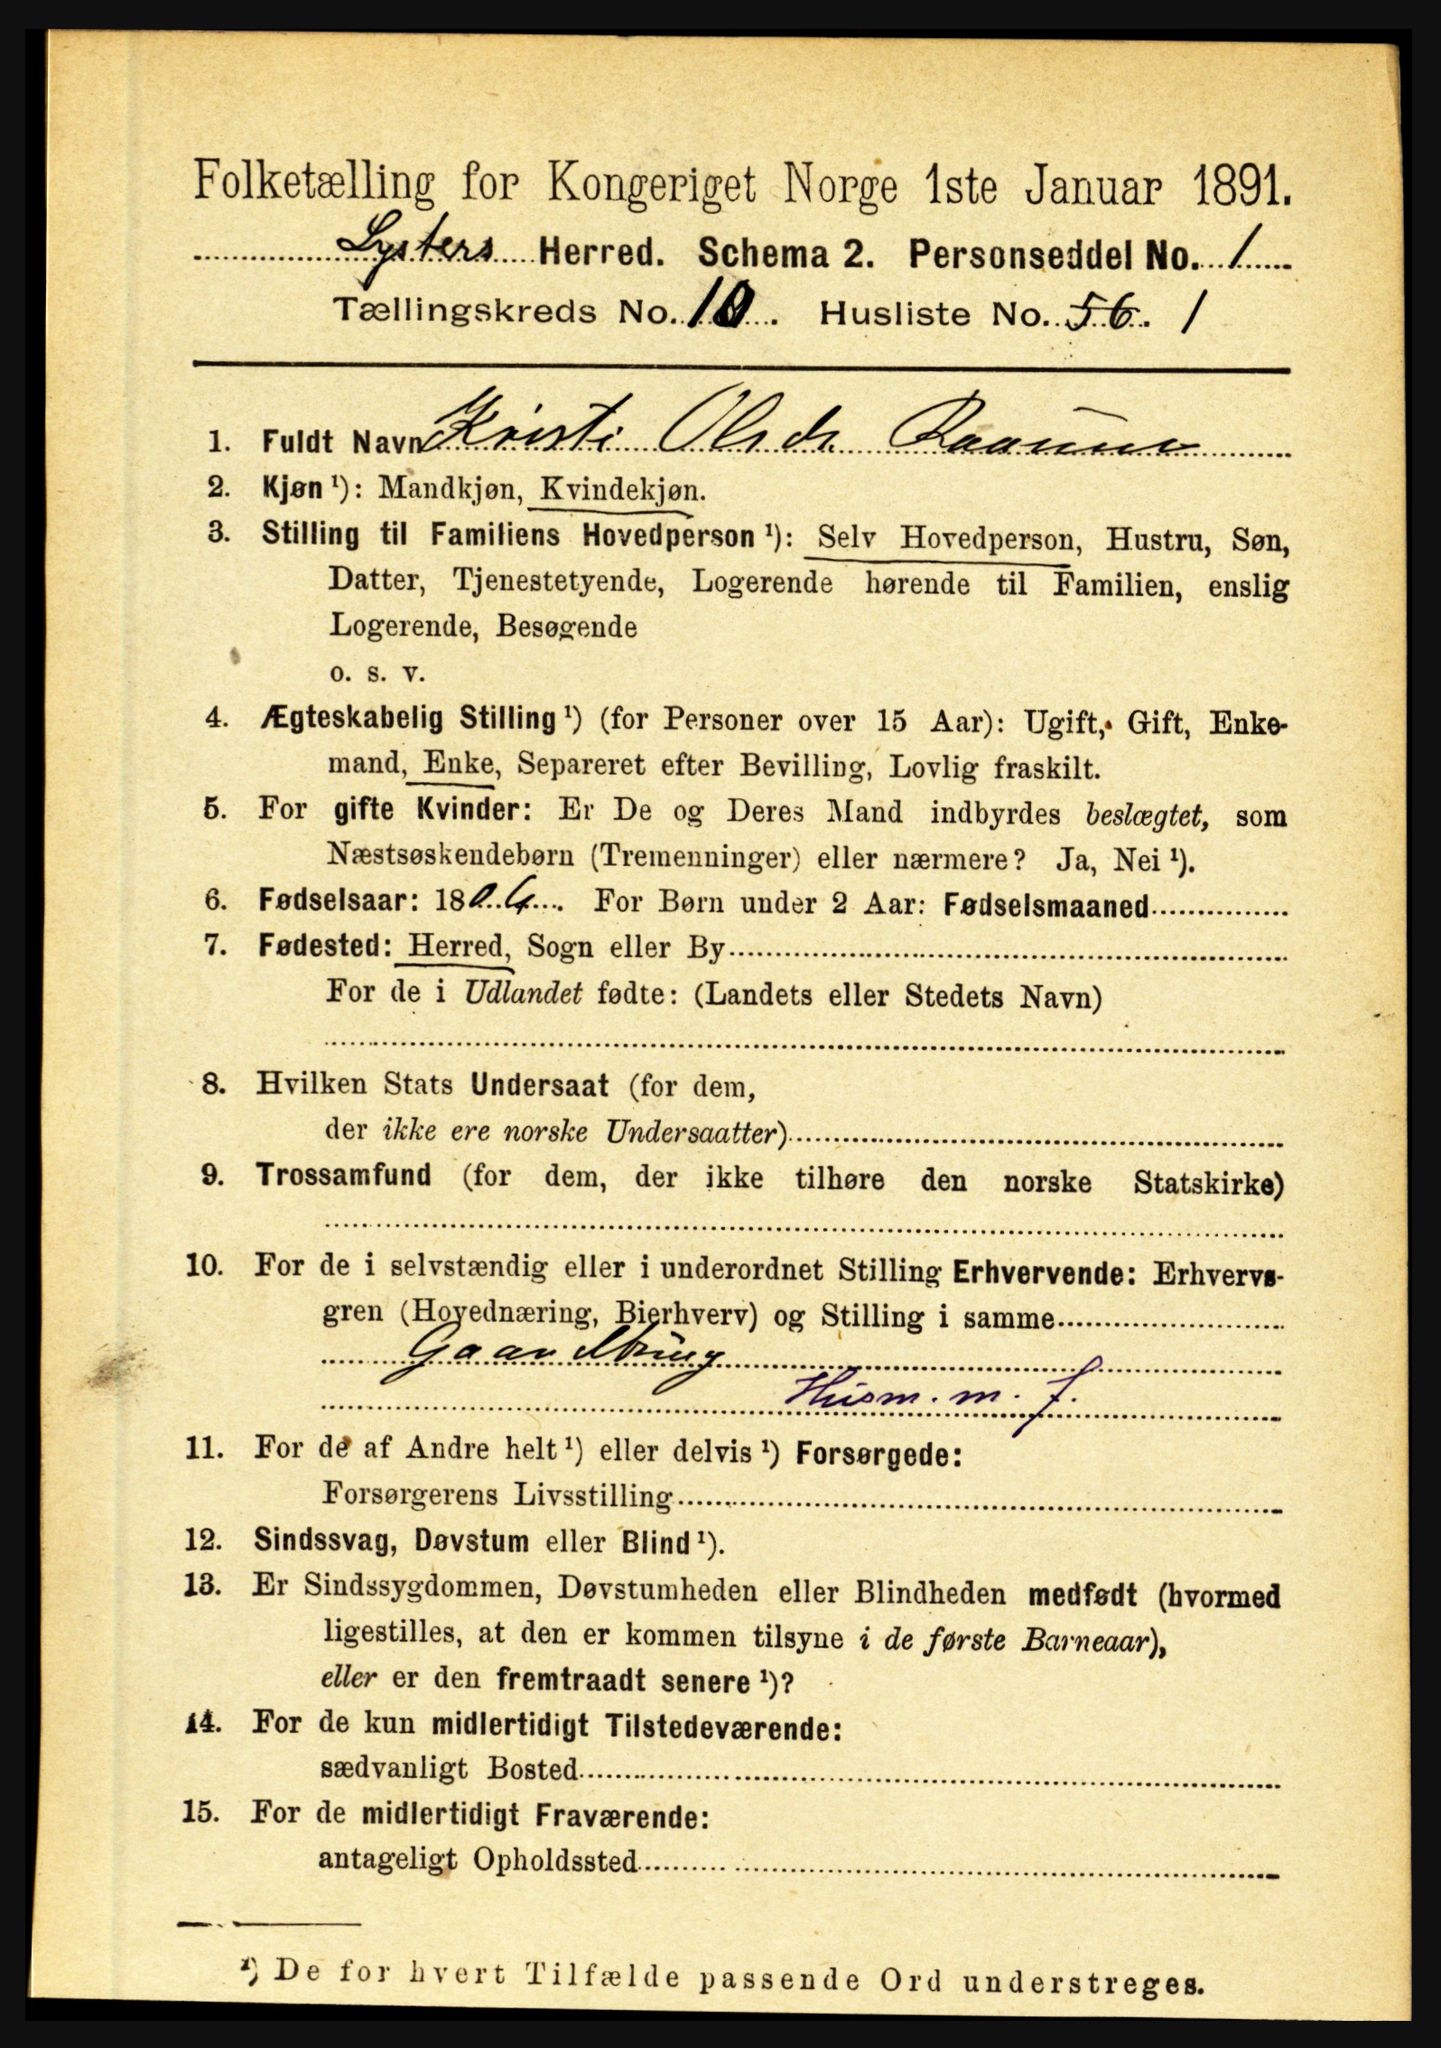 Folketælling for Kongeriget Norge 1ste Januar 1891.
Lysters Herred. Schema 2. Personseddel No. 1
Tællingskreds No. 10. Husliste No. 56. 1
1. Fuldt Navn Kristi Olsdr.
2. Kjøn ¹): Mandkjøn, Kvindekjøn.
3. Stilling til Familiens Hovedperson ¹): Selv Hovedperson, Hustru, Søn,
Datter, Tjenestetyende, Logerende hørende til Familien, enslig
Logerende, Besøgende
o. s. v.
4. Ægteskabelig Stilling ¹) (for Personer over 15 Aar): Ugift, Gift, Enke-
mand, Enke, Separeret efter Bevilling, Lovlig fraskilt.
5. For gifte Kvinder: Er De og Deres Mand indbyrdes beslægtet, som
Næstsøskendebørn (Tremenninger) eller nærmere? Ja, Nei ¹).
6. Fødselsaar: 1804. For Børn under 2 Aar: Fødselsmaaned
7. Fødested: Herred, Sogn eller By
For de i Udlandet fødte: (Landets eller Stedets Navn)
8. Hvilken Stats Undersaat (for dem,
der ikke ere norske Undersaatter)
9. Trossamfund (for dem, der ikke tilhøre den norske Statskirke)
10. For de i selvstændig eller i underordnet Stilling Erhvervende: Erhvervs-
gren (Hovednæring, Bierhverv) og Stilling i samme
Husm. m. J.
11. For de af Andre helt ¹) eller delvis ¹) Forsørgede:
Forsørgerens Livsstilling
12. Sindssvag, Døvstum eller Blind ¹).
13. Er Sindssygdommen, Døvstumheden eller Blindheden medfødt (hvormed
ligestilles, at den er kommen tilsyne i de første Barneaar),
eller er den fremtraadt senere ¹)?
14. For de kun midlertidigt Tilstedeværende:
sædvanligt Bosted
15. For de midlertidigt Fraværende:
antageligt Opholdssted
¹) De for hvert Tilfælde passende Ord understreges.